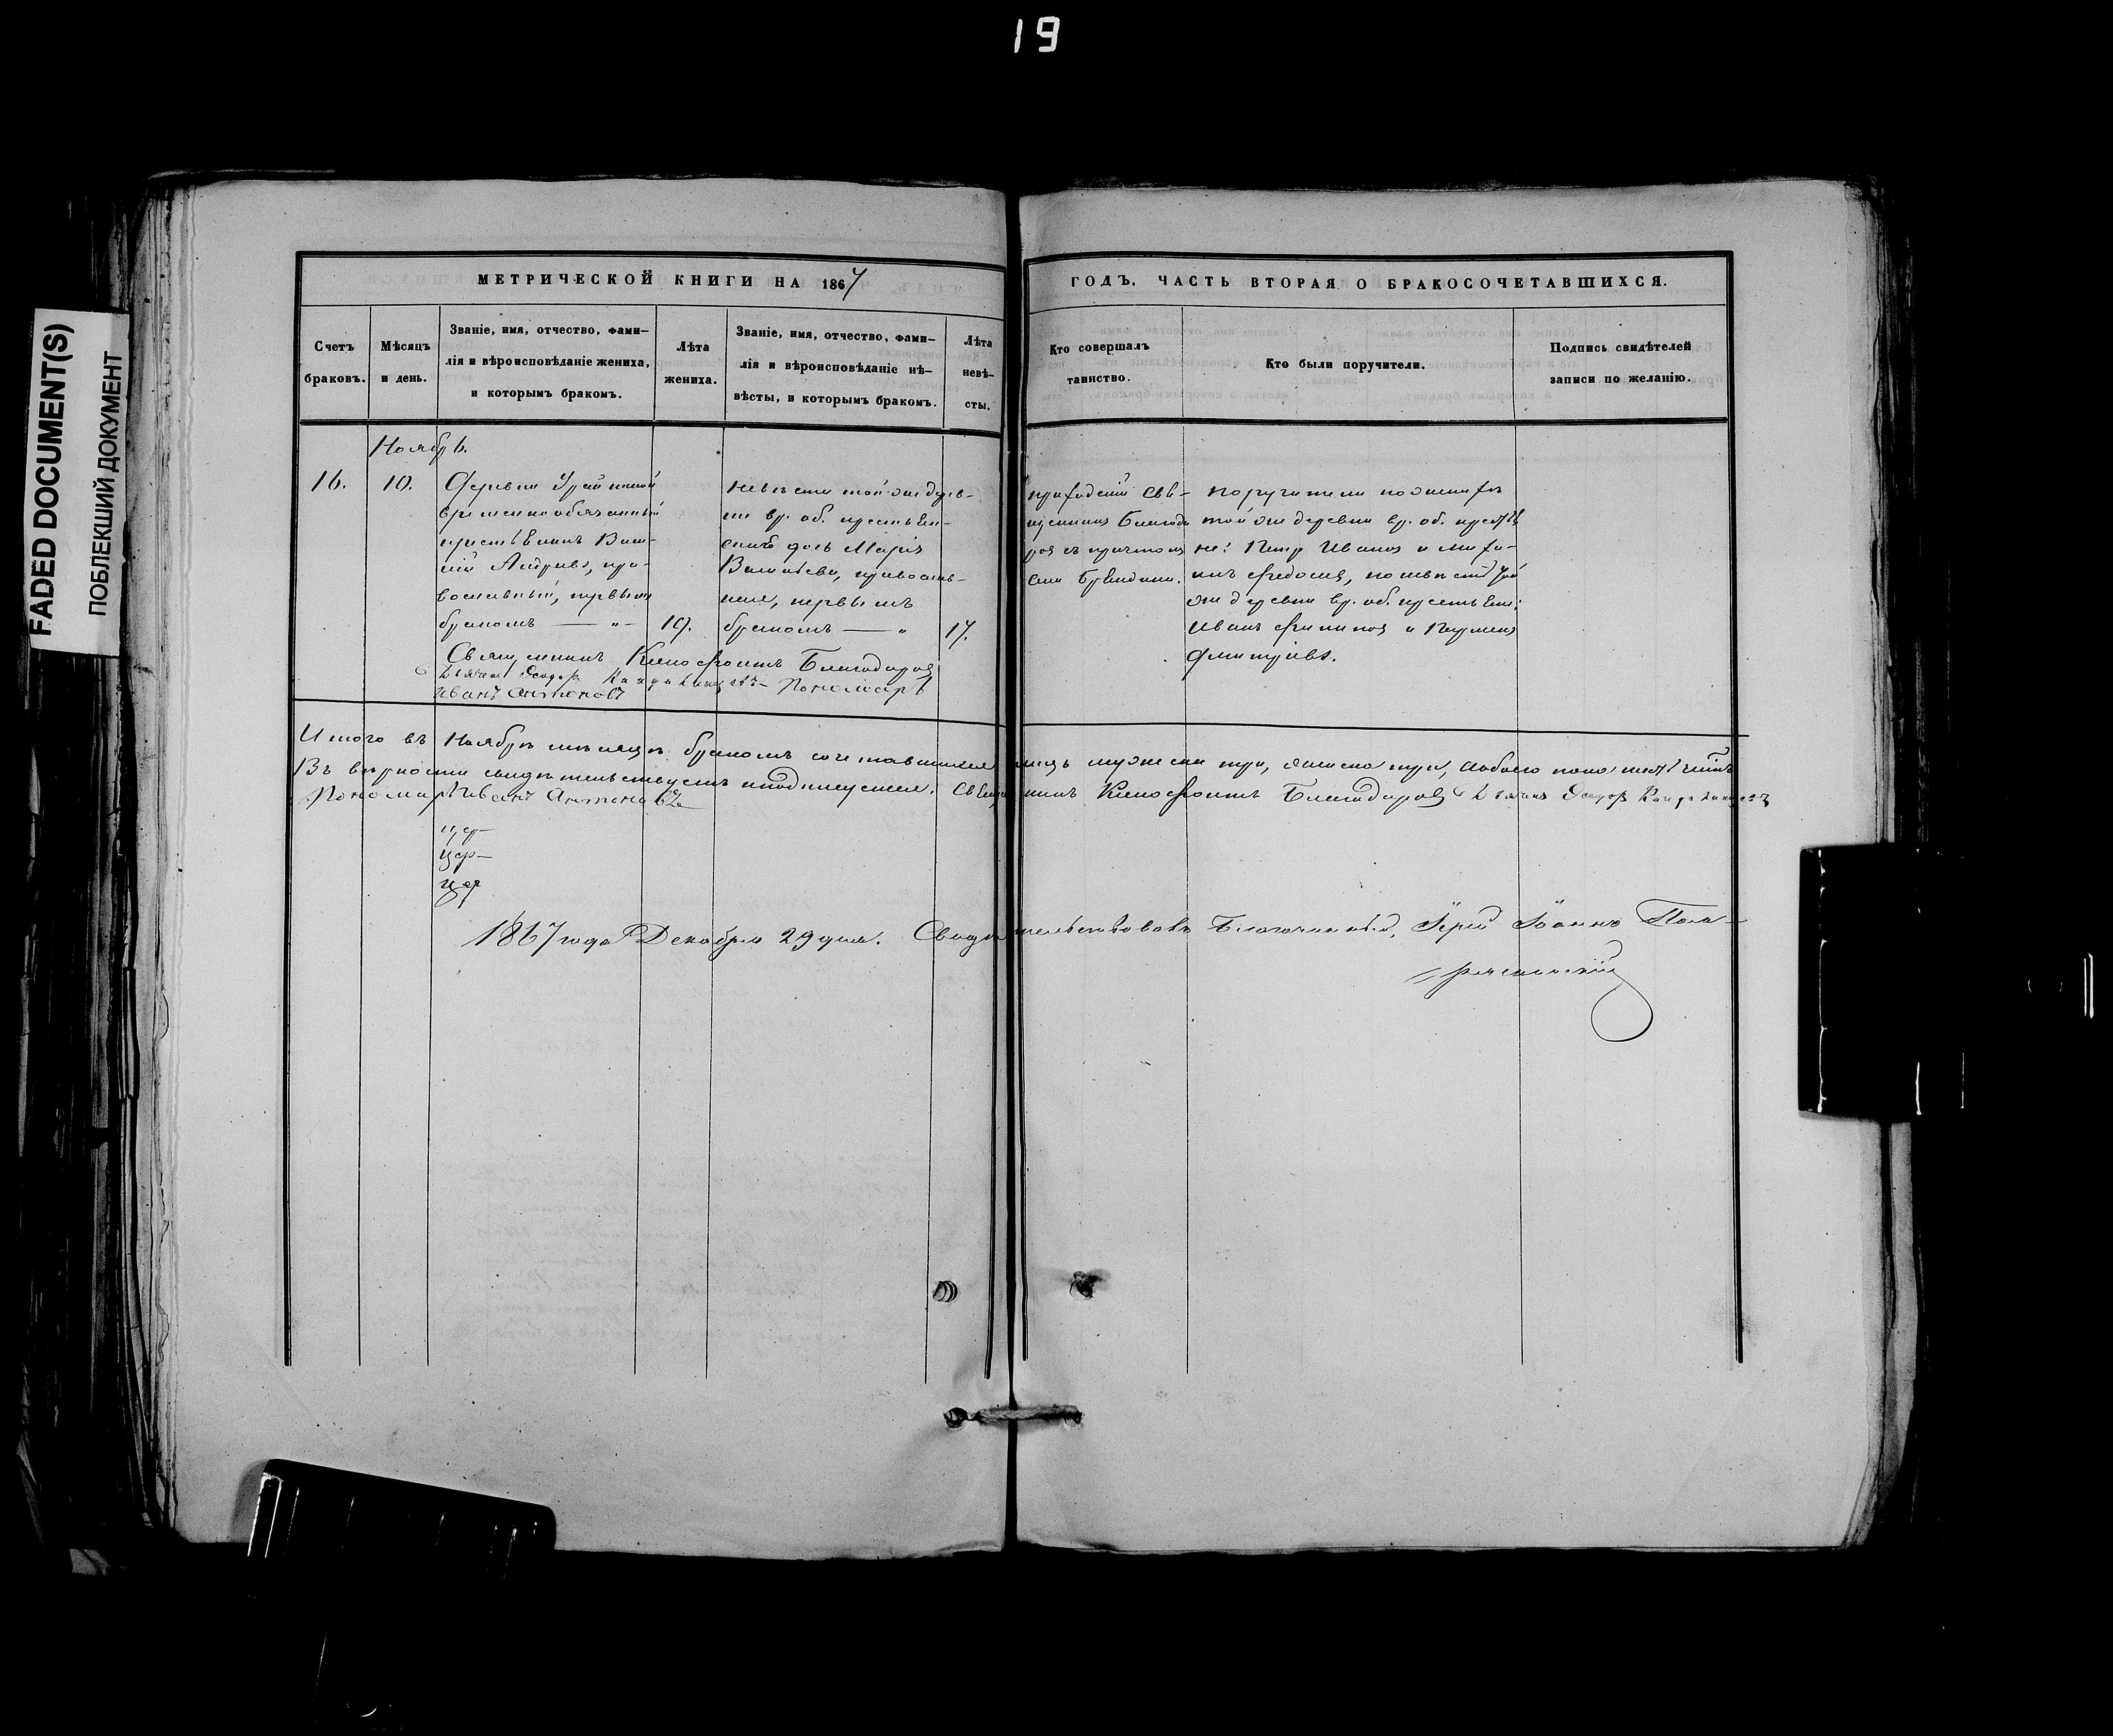 19
FADED DOCUMENT(S)
ПОБЛЕКШИЙ ДОКУМЕНТ
МЕТРИЧЕСКОЙ КНИГИ НА 1867
ГОДЪ, ЧАСТЬ ВТОРАЯ О БРАКОСОЧЕТАВШИХСЯ.
Счетъ
браковъ.
Мѣсяцъ
и день.
Званіе, имя, отчество, фами-
лія и вѣроисповѣданіе жениха,
и которымъ бракомъ.
Лѣта
жениха.
Званіе, имя, отчество, фами-
лія и вѣроисповѣданіе нѣ-
вѣсты, и которымъ бракомъ.
Лѣта
невѣ-
сты.
Кто совершалъ
таинство.
Кто были поручители.
Подпись свидѣтелей
записи по желанію.
Ноябрь.
16.
10.
Деревни
временнообязанный
крестьянинъ Васи-
лій Андреевъ, пра-
вославный, первымъ
бракомъ — „ —
19.
невѣста той же дерев-
ни вр. об. крестьян-
дочь Марія
Васильева, православ-
ная, первымъ
бракомъ — „
17.
приходскій Свя-
щенникъ Благода
ровъ съ причтомъ
поручители по женихѣ
той же деревни вр. об. крестья
не: Петр Иванов и
Федоров, по невѣстѣ той
же деревни вр. об. крестьяне:
Иванъ Филипов и
Дмитріевъ.
Священникъ Ксенофонтъ Благодаров
Дьячекъ Пономарь
Иванъ Антоновъ
Итого въ Ноябрѣ мѣсяцѣ бракомъ сочетавшихся лицъ мужска три, женска три, обоего пола шесть
Въ вѣрности свидѣтельствуемъ и подписуемся. Священникъ Ксенофонтъ Благодаров Дьячекъ
Пономарь Иванъ Антоновъ
цер—
цер—
цер
1867 года Декабря 29 дня. Свидѣтельствовалъ Благочинный, Іерей Іоаннъ